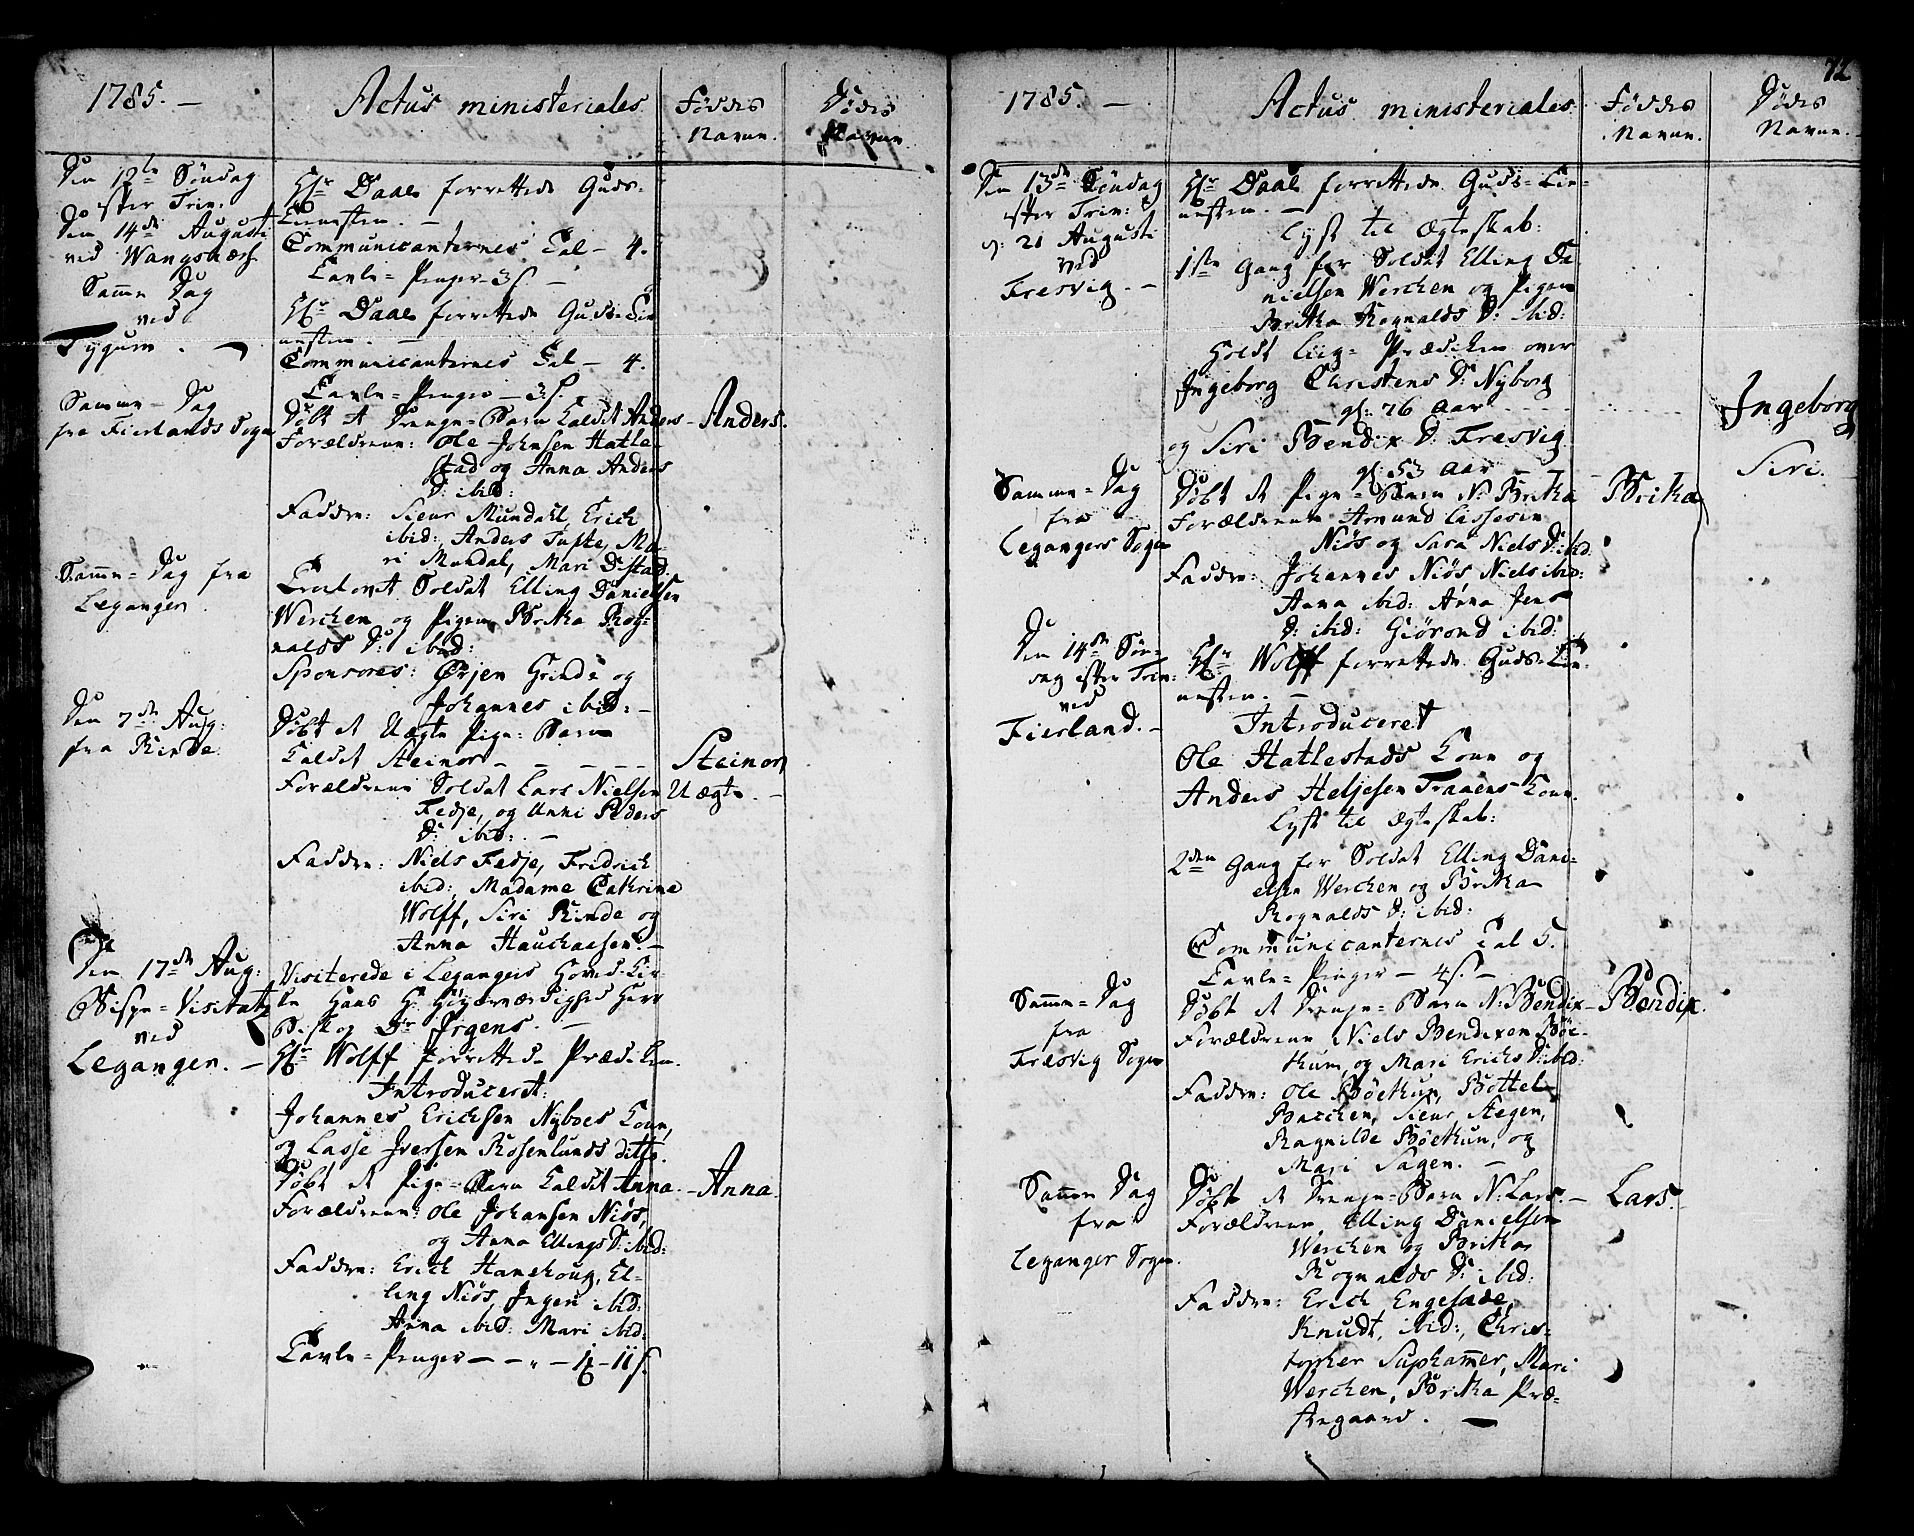 1785. —
Actus ministeriales
Føddes Navne.
Dødes Navne
Den 12te Søndag
efter Trin.
Den 14de Augusti
ved Wangsnæss
Samme Dag
ved
Tygum. —
Hr Daae forrettede Guds-
Tienesten. —
Communicanternes Tal — 4.
Tavle-Penger 3 s. —
Hr Daae forrettede Guds-Tie-
nesten. —
Communicanternes Tal — 4.
Tavle-Penger — 3 s.
Samme-Dag
fra Fierlands Sogn
Døbt et Drenge-Barn kaldet Anders — Anders.
Forældrene: Ole Johnsen Hatle-
stad og Anna Anders
D: ibid:
Faddre: Siur Mundahl, Erich
ibid: Anders Tufte, Ma-
ri Mundal, Mari Distad.
Samme-Dag fra
Leganger.
Trolovet Soldat Elling Danielsen
Werchen og Pigen Britha Rog-
nalds D: ibid:
Sponsores: Ørjen Grinde og
Johannes ibid: —
Den 7de Aug:
fra Rinde.
Døbt et Uægte Pige-Barn
kaldet Steinor — — — — Steinor
Forældrene Soldat Lars Nielsen Uægte. —
Fedje, og Anni Peders
D: ibid: —
Faddre: Niels Fedje, Fridrich
ibid: Madame Cathrine
Wolff, Siri Rinde og
Anna Hauchaasen. —
Den 17de Aug:
Bispe-Visitatz
ved
Leganger. —
Visiterede i Legangers Hoved-Kir-
ke Hans H: Høyærværdighed Herr
Biskop Dr Irgens. —
Hr Wolff forrettede Prædiken.
Introduceret:
Johannes Erichsen Nyboes Kone,
og Lasse Iversen Rosenlunds ditto.
Døbt et Pige-Barn kaldet Anna. — Anna.
Forældrene: Ole Johansen Niøs,
og Anna Ellings D: ibid:
Faddre: Erich Hanehoug, El-
ling Niøs, Ingen ibid:
Anna ibid: Mari ibid:
Tavle-Penger — — „ — 1 — 11 s.
72
1785. —
Actus ministeriales.
Føddes Navne.
Dødes Navne.
Den 13de Søndag
efter Trin:
d: 21 Augusti
ved
Fresvig. —
Hr Daae forrettede Guds-Tie-
nesten. —
Lyst til Ægteskab:
1ste Gang for Soldat Elling Da-
nielsen Werchen og Pigen
Britha Rognalds D: ibid:
Holdt Liig-Prædiken over
Ingeborg Christens D: Nyborg
gl: 76 Aar - - - - Ingeborg
og Siri Bendix D: Fresvig
gl: 53 Aar — Siri.
Samme-Dag
fra
Legangers Sogn
Døbt et Pige-Barn N: Britha — Britha
Forældrene Amund Lassesen
Niøs og Sara Niels D: ibid.
Faddre: Johannes Niøs, Niels ibid:
Anna ibid: Anna Jens
D: ibid: Giørond ibid:
Den 14de Søn-
dag efter Trin:
ved
Fierland. —
Hr Wolff forrettede Guds-Tie-
nesten. —
Introduceret
Ole Hatlestads Kone og
Anders Heljesen Traaens Kone.
Lyst til Ægteskab:
2den Gang for Soldat Elling Dani-
elsen Werchen og Britha
Rognalds D: ibid:
Communicanternes Tal 5.
Tavle-Penger — 4 s. —
Samme-Dag
fra
Fræsvig Sogn
Døbt et Drenge-Barn N: Bendix — Bendix.
Forældrene Niels Bendixen Bøe-
thun, og Mari Erichs D: ibid:
Faddre: Ole Bøethun, Bottel
Batchen, Siur Stegen,
Ragnilde Bøethun, og
Mari Sagen. —
Samme Dag
fra
Leganger Sogn.
Døbt et Drenge-Barn N: Lars. — Lars.
Forældrene, Elling Danielsen
Werchen og Britha
Rognalds D: ibid:
Faddre: Erich Engesæde,
Knudt, ibid:, Chris-
topher Suphammer, Mari
Werchen, Britha Præ-
stegaard. —